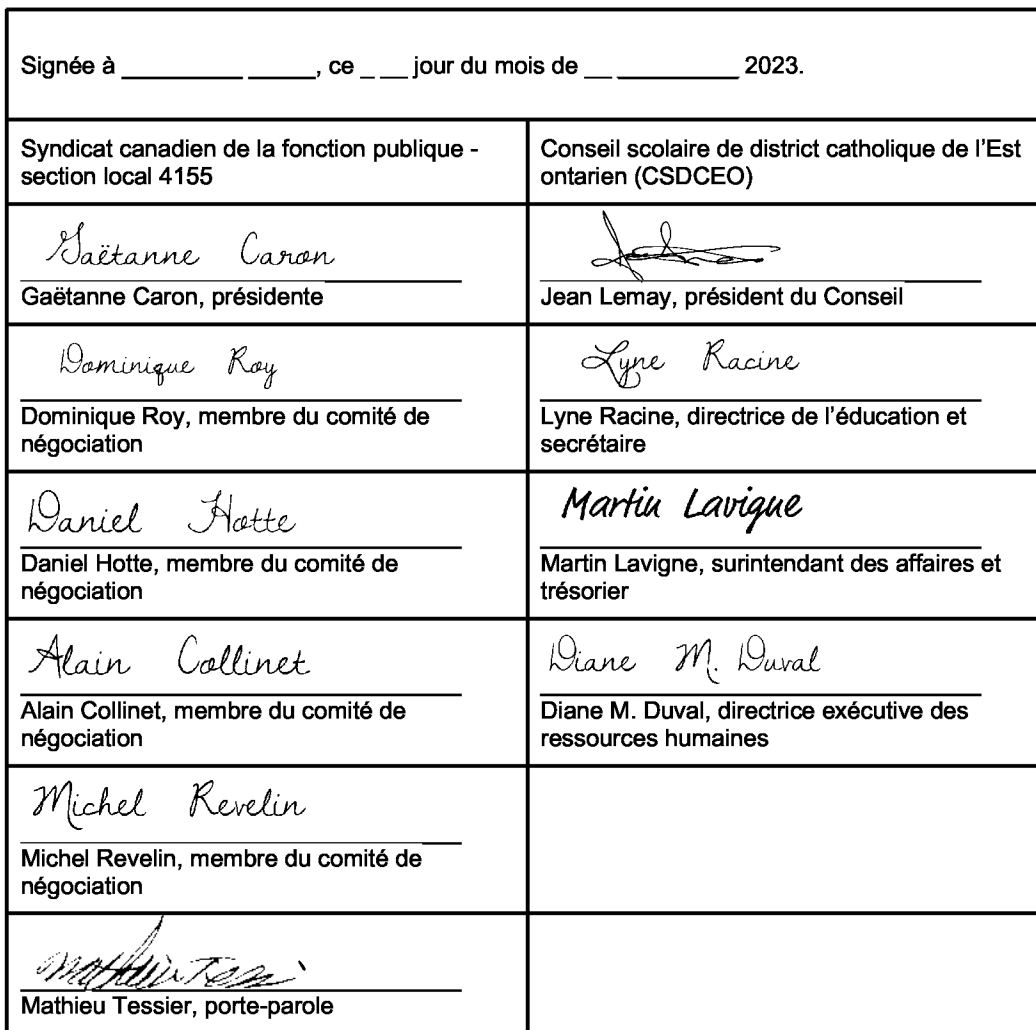 Signée à _________ _____, ce _ __ jour du mois de __ _________ 2023.
Syndicat canadien de la fonction publique -
section local 4155
Conseil scolaire de district catholique de l'Est
ontarien (CSDCEO)
Gaëtanne Caron
Gaëtanne Caron, présidente
Jean Lemay, président du Conseil
Dominique Roy
Dominique Roy, membre du comité de
négociation
Lyne Racine
Lyne Racine, directrice de l'éducation et
secrétaire
Daniel Hotte
Daniel Hotte, membre du comité de
négociation
Martin Lavigne
Martin Lavigne, surintendant des affaires et
trésorier
Alain Collinet
Alain Collinet, membre du comité de
négociation
Diane M. Duval
Diane M. Duval, directrice exécutive des
ressources humaines
Michel Revelin
Michel Revelin, membre du comité de
négociation
Mathieu Tessier, porte-parole